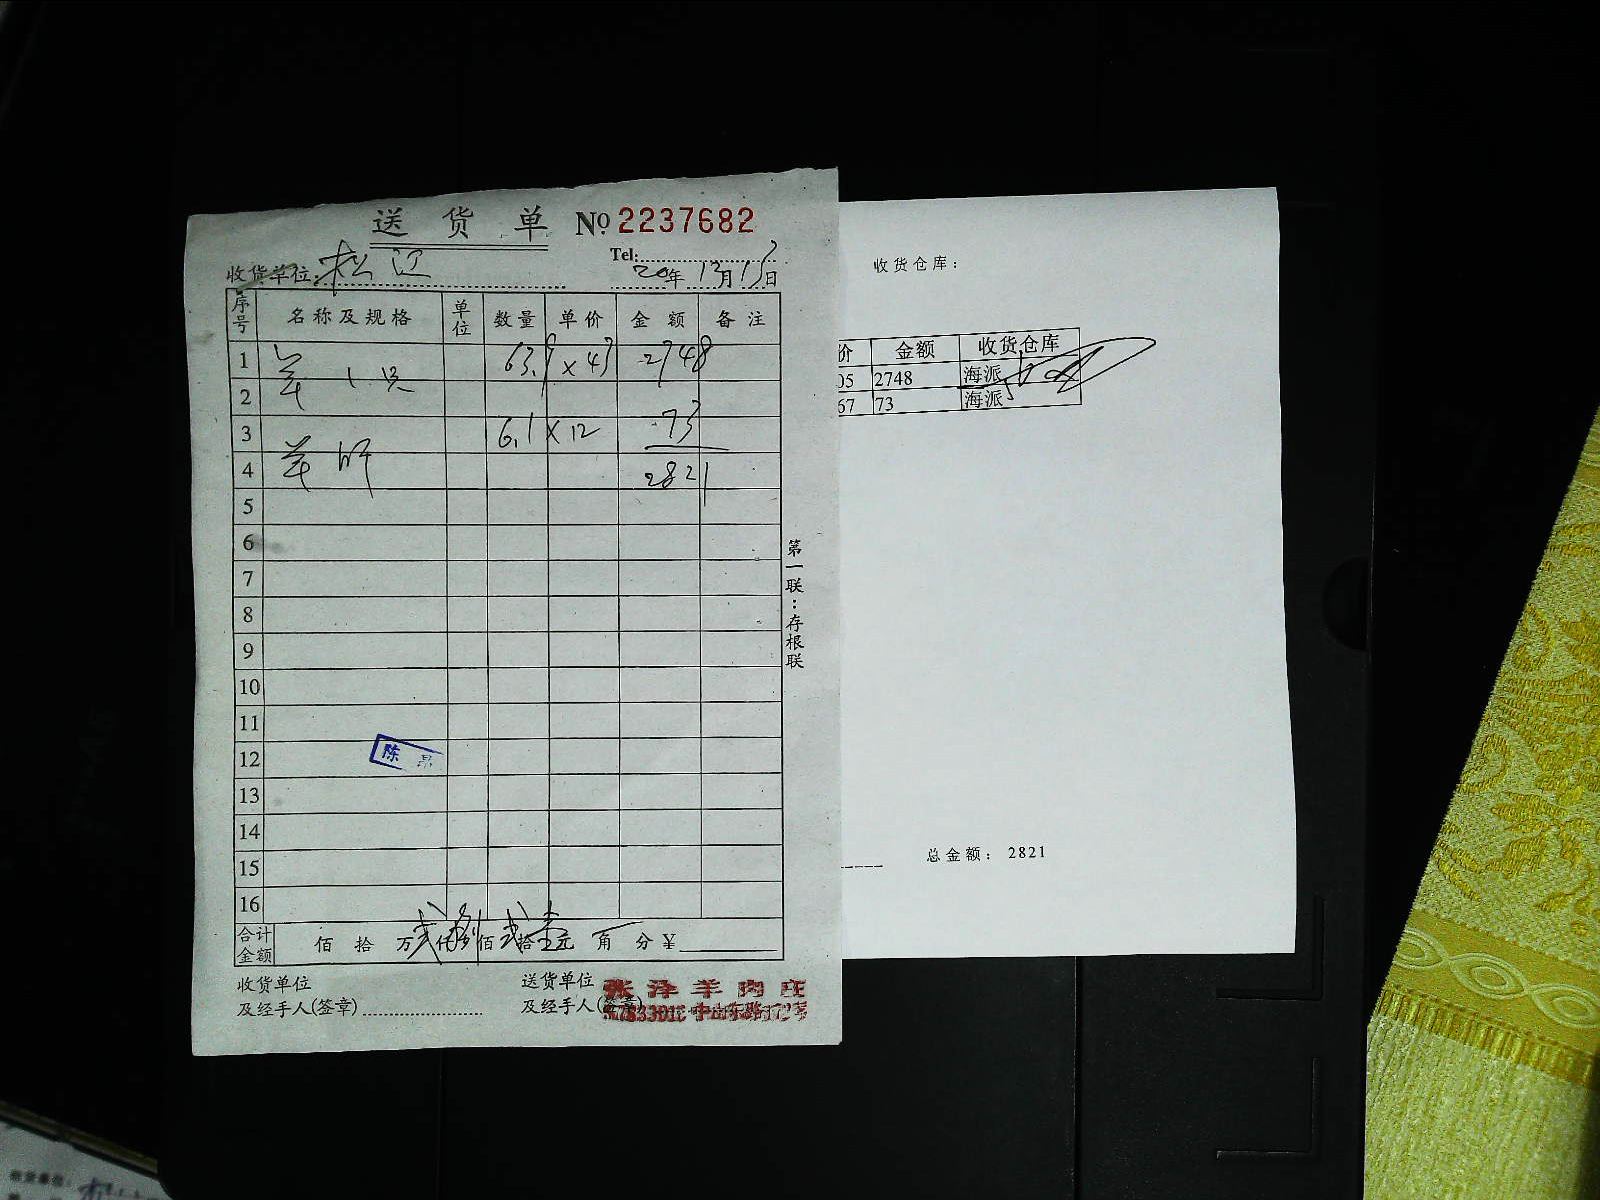 送货单 № 2237682
Tel:
收货单位: 松江 20年12月13日
序号 名称及规格 单位 数量 单价 金额 备注
1 羊 1只 63.9 × 43 2748
2
3 6.1 × 12 73
4 羊 2821
5
6
7
8
9
10
11
12 陈
13
14
15
16
合计金额 佰 拾 万 贰 仟 捌 佰 贰 拾 壹 元 角 分 ¥
收货单位 送货单位
及经手人(签章) 及经手人(签章)
张泽羊肉庄
中山东路172号
第一联:存根联
收货仓库:
价 金额 收货仓库
05 2748 海派
67 73 海派
总金额: 2821